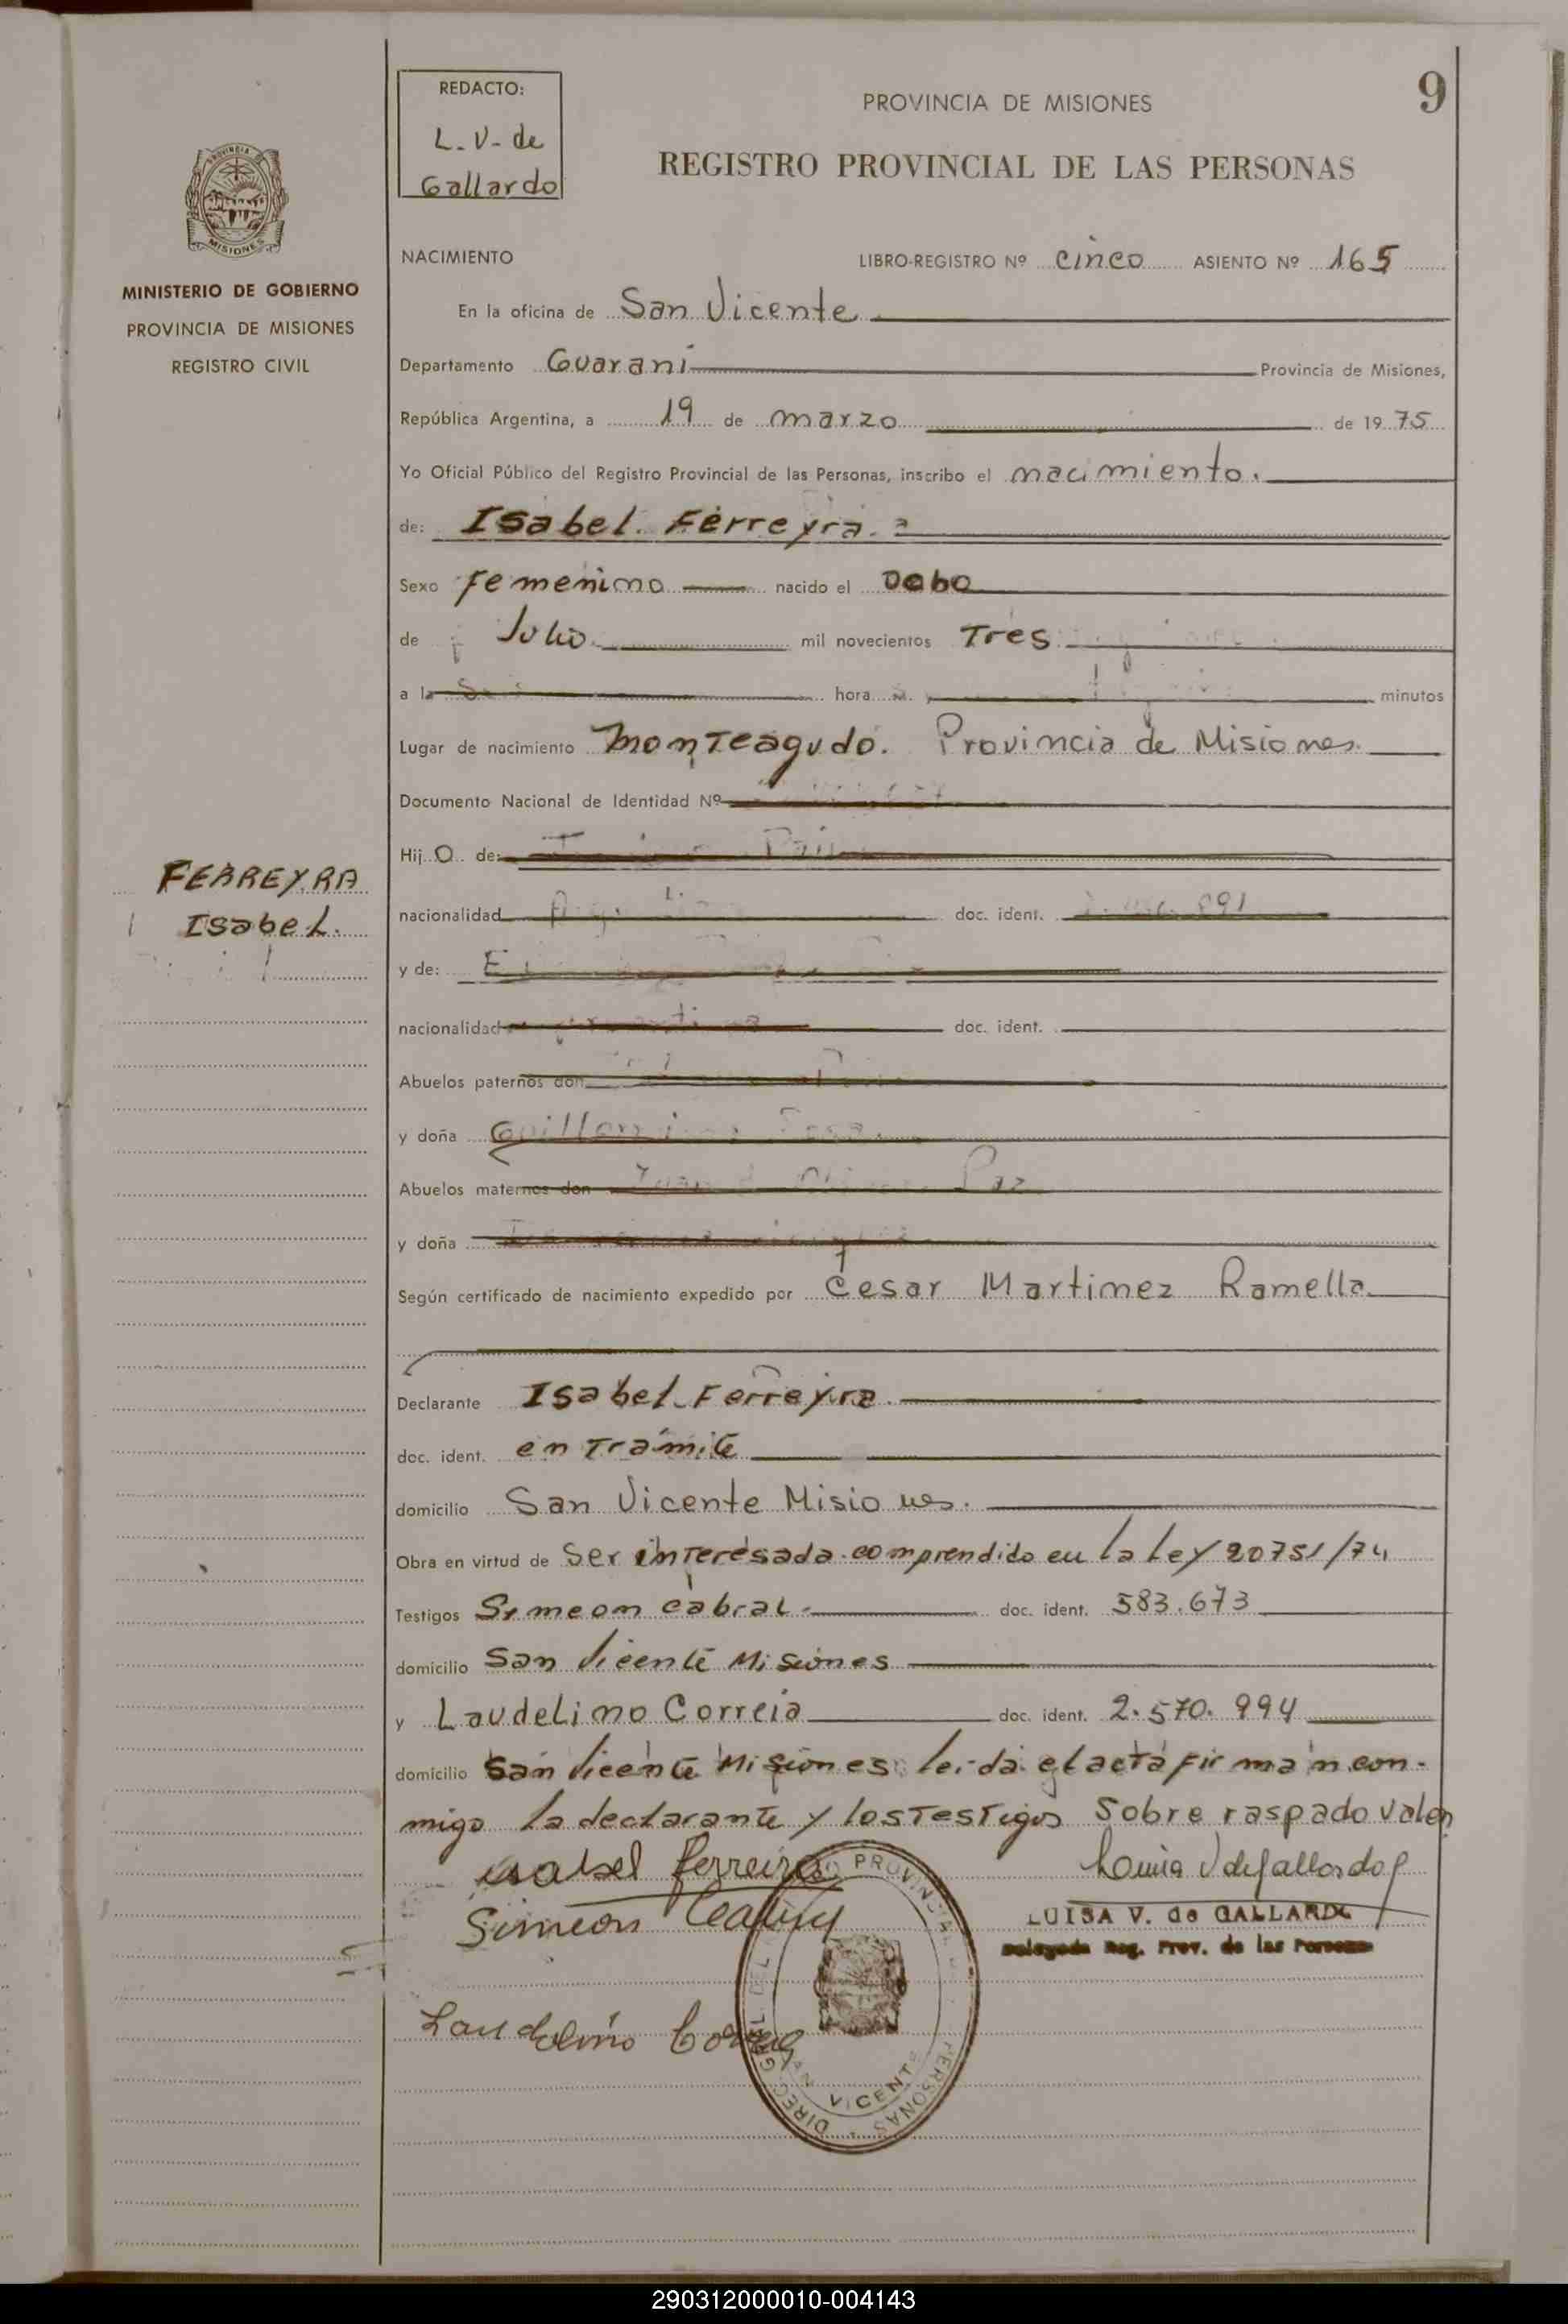 9
REDACTO:
L. V- de
Gallardo
PROVINCIA DE MISIONES
REGISTRO PROVINCIAL DE LAS PERSONAS
PROVINCIA DE
MISIONES
MINISTERIO DE GOBIERNO
PROVINCIA DE MISIONES
REGISTRO CIVIL
NACIMIENTO LIBRO-REGISTRO Nº cinco ASIENTO Nº 165
En la oficina de San Vicente
Departamento Guarani Provincia de Misiones,
República Argentina, a 19 de marzo de 1975
Yo Oficial Público del Registro Provincial de las Personas, inscribo el nacimiento.
de: Isabel Ferreyra.
Sexo Femenino nacido el
de Julio mil novecientos Tres
a la hora minutos
Lugar de nacimiento Monteagudo. Provincia de Misiones.
Documento Nacional de Identidad Nº
Hij O de:
FERREYRA
Isabel.
nacionalidad doc. ident.
y de:
nacionalidad doc. ident.
Abuelos paternos don
y doña
Abuelos maternos don Paz
y doña
Según certificado de nacimiento expedido por Cesar Martinez Ramella
Declarante Isabel Ferreyra.
doc. ident. en Trámite
domicilio San Vicente Misiones.
Obra en virtud de ser interesada comprendido en la Ley 20751/74
Testigos Simeon Cabral. doc. ident. 583.673
domicilio San Vicente Misiones
y Laudelino Correia doc. ident. 2.570.994
domicilio San Vicente Misiones leida el acta firman con-
migo la declarante y los Testigos Sobre raspado valen
Isabel Ferreira
Luisa V de Gallardo
Simeon
LUISA V. de GALLARDO
Delegada Reg. Prov. de las Personas
Laudelino Correia
SAN VICENTE
290312000010-004143